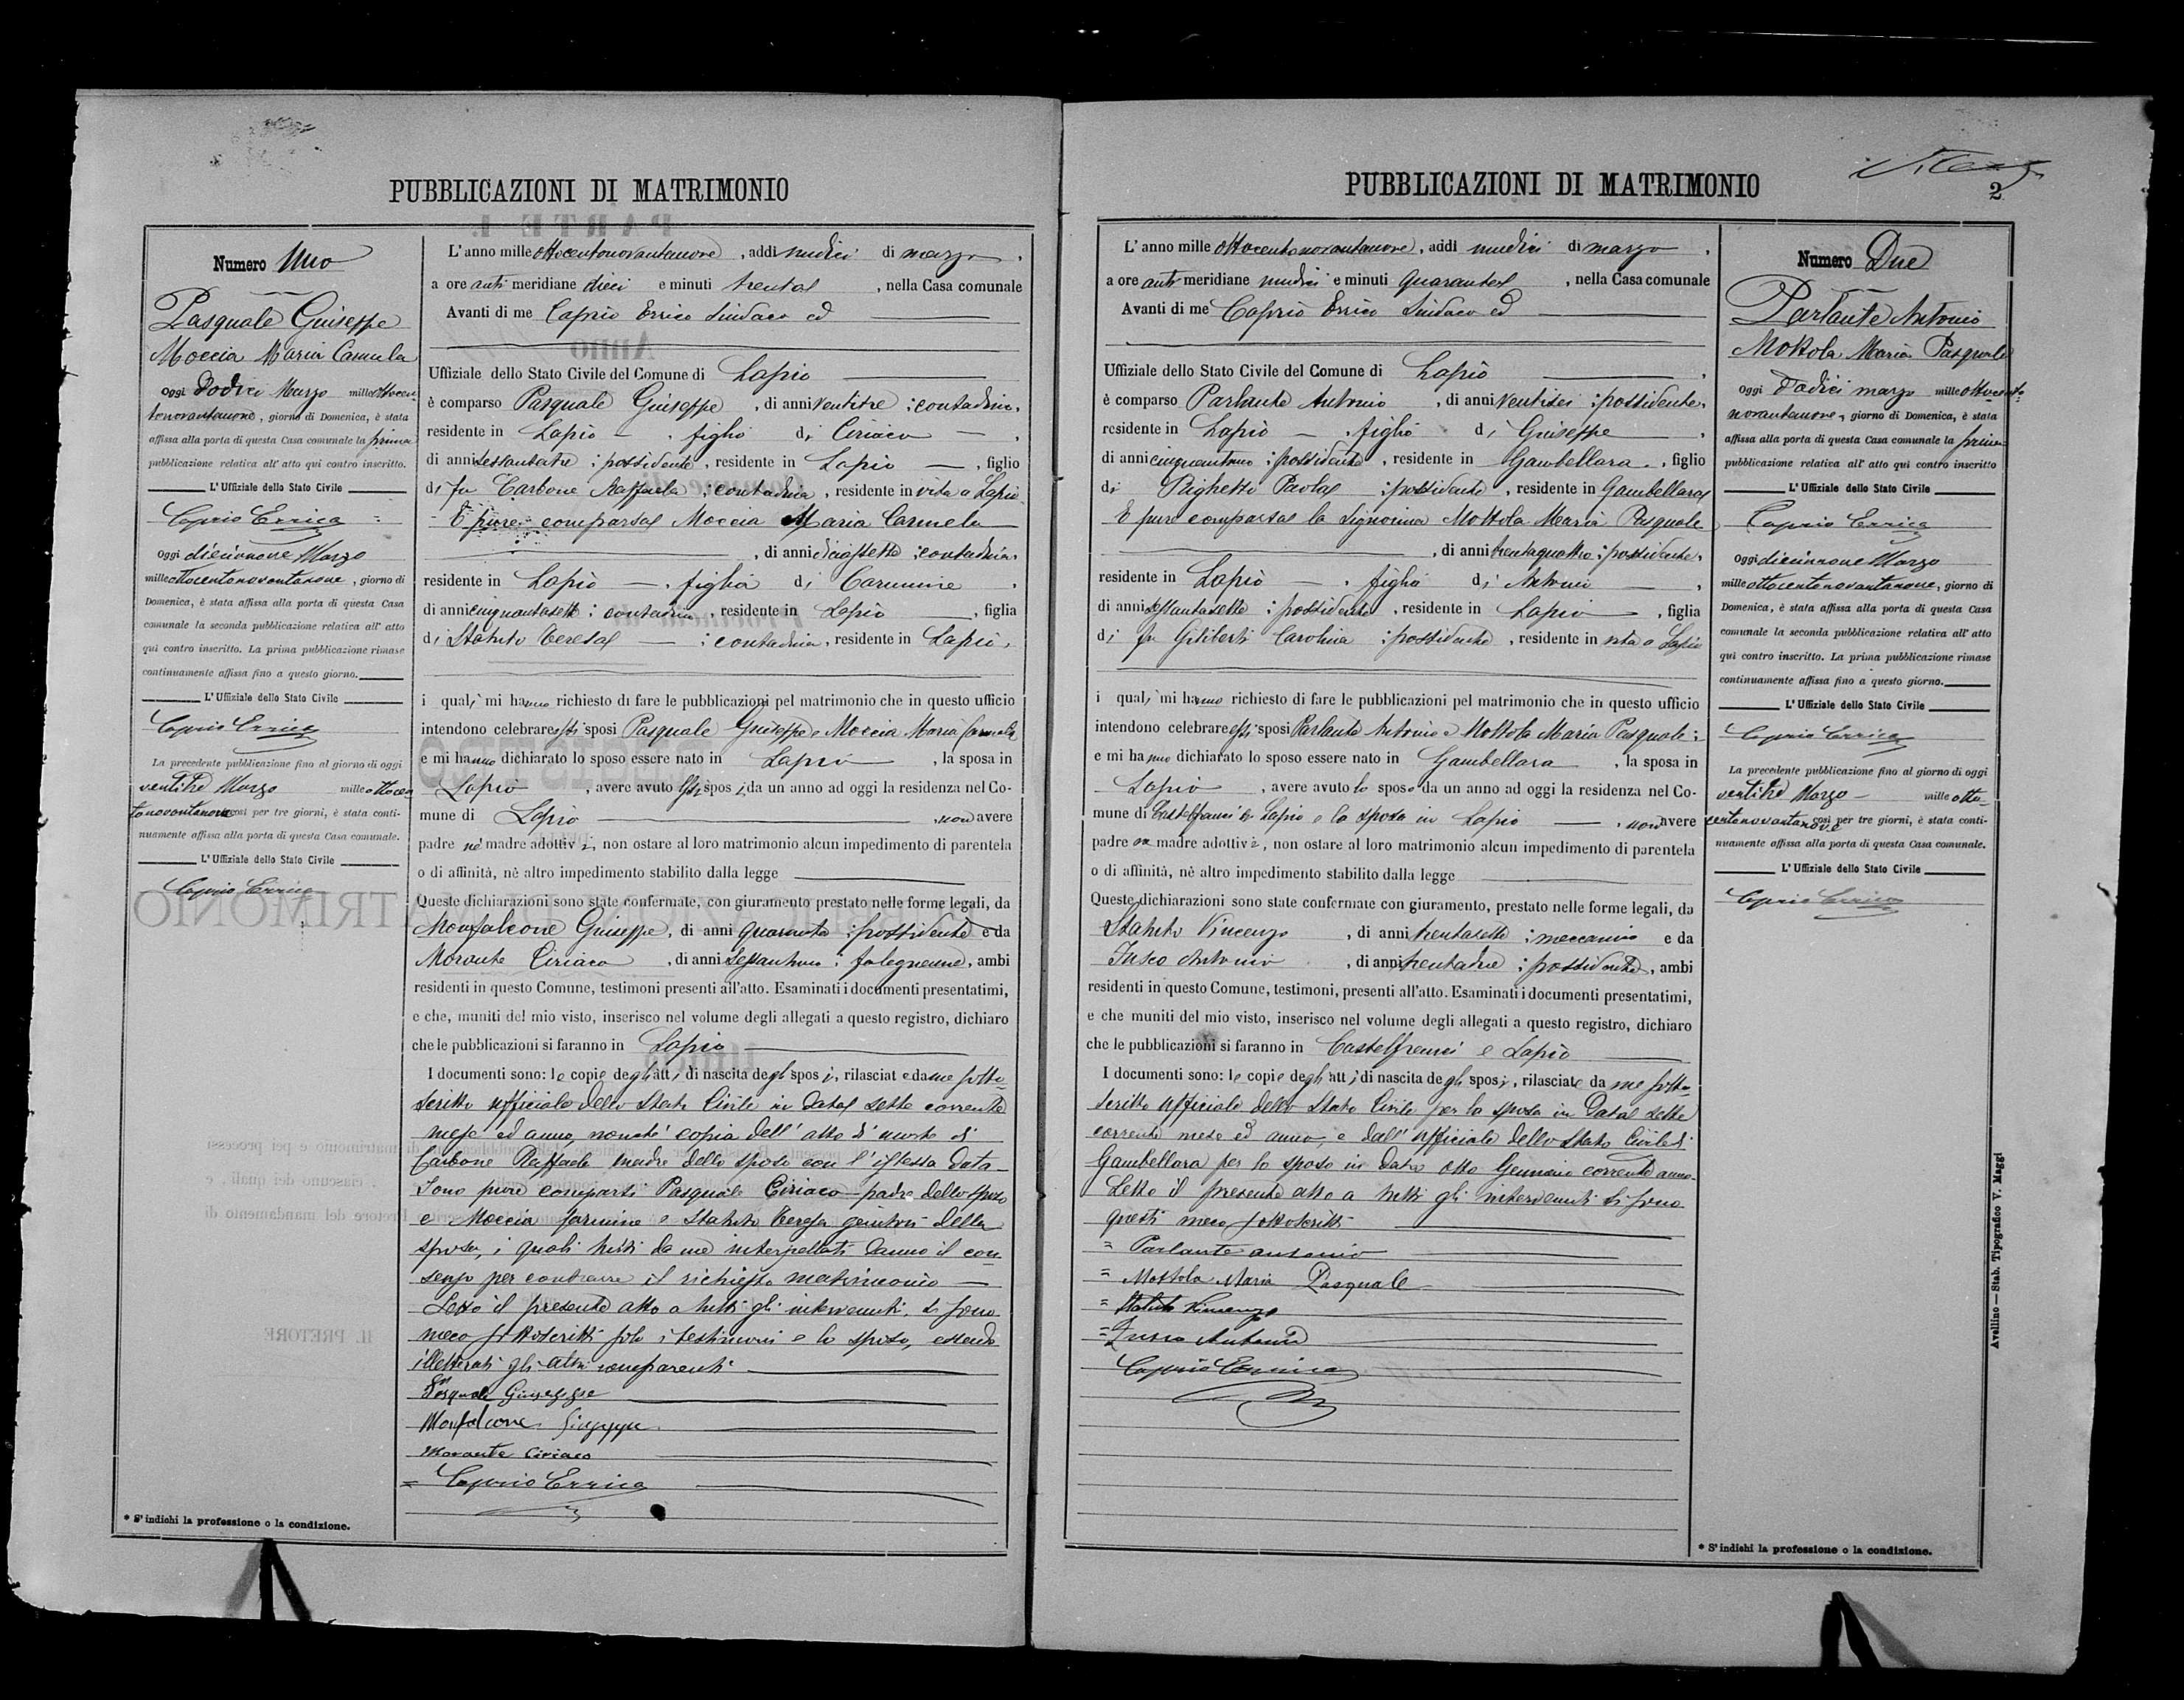 PUBBLICAZIONI DI MATRIMONIO
Numero Uno
Pasquale Giuseppe
Moccia Maria Carmela
Oggi Dodici Marzo mille ottocen
tonovantanove, giorno di Domenica, è stata
affissa alla porta di questa Casa comunale la prima
pubblicazione relativa all' atto qui contro inscritto.
L' Uffiziale dello Stato Civile
Caprio Errico
Oggi diciannove Marzo
mille ottocentonovantanove, giorno di
Domenica, è stata affissa alla porta di questa Casa
comunale la seconda pubblicazione relativa all' atto
qui contro inscritto. La prima pubblicazione rimase
continuamente affissa fino a questo giorno.
L' Uffiziale dello Stato Civile
Caprio Errico
La precedente pubblicazione fino al giorno di oggi
ventitre Marzo mille ottocen
tonovantanove così per tre giorni, è stata conti-
nuamente affissa alla porta di questa Casa comunale.
L' Uffiziale dello Stato Civile
Caprio Errico
* S' indichi la professione o la condizione.
L' anno mille ottocentonovantanove, addì undici di marzo,
a ore anti meridiane dieci e minuti trenta, nella Casa comunale
Avanti di me Caprio Errico Sindaco ed
Uffiziale dello Stato Civile del Comune di Lapio
è comparso Pasquale Giuseppe, di anni ventitre; contadino,
residente in Lapio, figlio di Ciriaco,
di anni sessantatre; possidente, residente in Lapio, figlio
di fu Carbone Raffaela; contadina, residente in vita a Lapio
E pure comparsa Moccia Maria Carmela
, di anni diciassette; contadina,
residente in Lapio, figlia di Carmine,
di anni cinquantasett; contadino, residente in Lapio, figlia
di Statuto Teresa; contadina, residente in Lapio,
i quali mi hanno richiesto di fare le pubblicazioni pel matrimonio che in questo ufficio
intendono celebrare essi sposi Pasquale Giuseppe e Moccia Maria Carmela
e mi hanno dichiarato lo sposo essere nato in Lapio, la sposa in
Lapio, avere avuto essi sposi da un anno ad oggi la residenza nel Co-
mune di Lapio, non avere
padre nè madre adottivi, non ostare al loro matrimonio alcun impedimento di parentela
o di affinità, nè altro impedimento stabilito dalla legge
Queste dichiarazioni sono state confermate, con giuramento prestato nelle forme legali, da
Monfalcone Giuseppe, di anni quaranta; possidente e da
Morante Ciriaco, di anni sessantuno; falegname, ambi
residenti in questo Comune, testimoni presenti all'atto. Esaminati i documenti presentatimi,
e che, muniti del mio visto, inserisco nel volume degli allegati a questo registro, dichiaro
che le pubblicazioni si faranno in Lapio
I documenti sono: le copie degli atti di nascita degli sposi, rilasciate da me sotto-
scritto ufficiale dello Stato Civile in data sette corrente
mese ed anno, nonché copia dell' atto di morte di
Carbone Raffaela madre dello sposo con l' istessa data
Sono pure comparsi Pasquale Ciriaco padre dello sposo
e Moccia Carmine e Statuto Teresa genitori della
sposa, i quali tutti da me interpellati danno il con-
senso per contrarre il richiesto matrimonio
Letto il presente atto a tutti gli intervenuti, si sono
meco sottoscritti solo i testimoni e lo sposo, essendo
illetterati gli altri comparenti
Pasquale Giuseppe
Monfalcone Giuseppe
Morante Ciriaco
= Caprio Errico
PUBBLICAZIONI DI MATRIMONIO
2
L' anno mille ottocentonovantanove, addì undici di marzo,
a ore anti meridiane undici e minuti quaranta, nella Casa comunale
Avanti di me Caprio Errico Sindaco ed
Uffiziale dello Stato Civile del Comune di Lapio,
è comparso Parlante Antonio, di anni ventisei; possidente,
residente in Lapio, figlio di Giuseppe,
di anni cinquantuno; possidente, residente in Gambellara, figlio
di Righetto Paola; possidente, residente in Gambellara
E pure comparsa la Signorina Mottola Maria Pasquale
, di anni trentaquattro; possidente,
residente in Lapio, figlia di Antonio,
di anni sessantasette; possidente, residente in Lapio, figlia
di fu Giliberti Carolina; possidente, residente in vita a Lapio
i quali mi hanno richiesto di fare le pubblicazioni pel matrimonio che in questo ufficio
intendono celebrare essi sposi Parlante Antonio e Mottola Maria Pasquale;
e mi hanno dichiarato lo sposo essere nato in Gambellara, la sposa in
Lapio, avere avuto lo sposo da un anno ad oggi la residenza nel Co-
mune di Castelfranci e Lapio e la sposa in Lapio, non avere
padre o madre adottivi, non ostare al loro matrimonio alcun impedimento di parentela
o di affinità, nè altro impedimento stabilito dalla legge
Queste dichiarazioni sono state confermate con giuramento, prestato nelle forme legali, da
Statuto Vincenzo, di anni trentasette; meccanico e da
Fusco Antonio, di anni trentadue; possidente, ambi
residenti in questo Comune, testimoni, presenti all'atto. Esaminati i documenti presentatimi,
e che muniti del mio visto, inserisco nel volume degli allegati a questo registro, dichiaro
che le pubblicazioni si faranno in Castelfranci e Lapio
I documenti sono: le copie degli atti di nascita degli sposi, rilasciate da me sotto-
scritto ufficiale dello Stato Civile per la sposa in data sette
corrente mese ed anno, e dall' ufficiale dello Stato Civile di
Gambellara per lo sposo in data otto Gennaio corrente anno.
Letto il presente atto a tutti gli intervenuti si sono
questi meco sottoscritti
= Parlante Antonio
= Mottola Maria Pasquale
= Statuto Vincenzo
= Fusco Antonio
Caprio Errico
Numero Due
Parlante Antonio
Mottola Maria Pasquale
Oggi Dodici marzo mille ottocento-
novantanove, giorno di Domenica, è stata
affissa alla porta di questa Casa comunale la prima
pubblicazione relativa all' atto qui contro inscritto
L' Uffiziale dello Stato Civile
Caprio Errico
Oggi diciannove Marzo
mille ottocentonovantanove, giorno di
Domenica, è stata affissa alla porta di questa Casa
comunale la seconda pubblicazione relativa all' atto
qui contro inscritto. La prima pubblicazione rimase
continuamente affissa fino a questo giorno.
L' Uffiziale dello Stato Civile
Caprio Errico
La precedente pubblicazione fino al giorno di oggi
ventitre Marzo mille otto-
centonovantanove così per tre giorni, è stata conti-
nuamente affissa alla porta di questa Casa comunale.
L' Uffiziale dello Stato Civile
Caprio Errico
* S' indichi la professione o la condizione.
Avellino — Stab. Tipografico V. Maggi